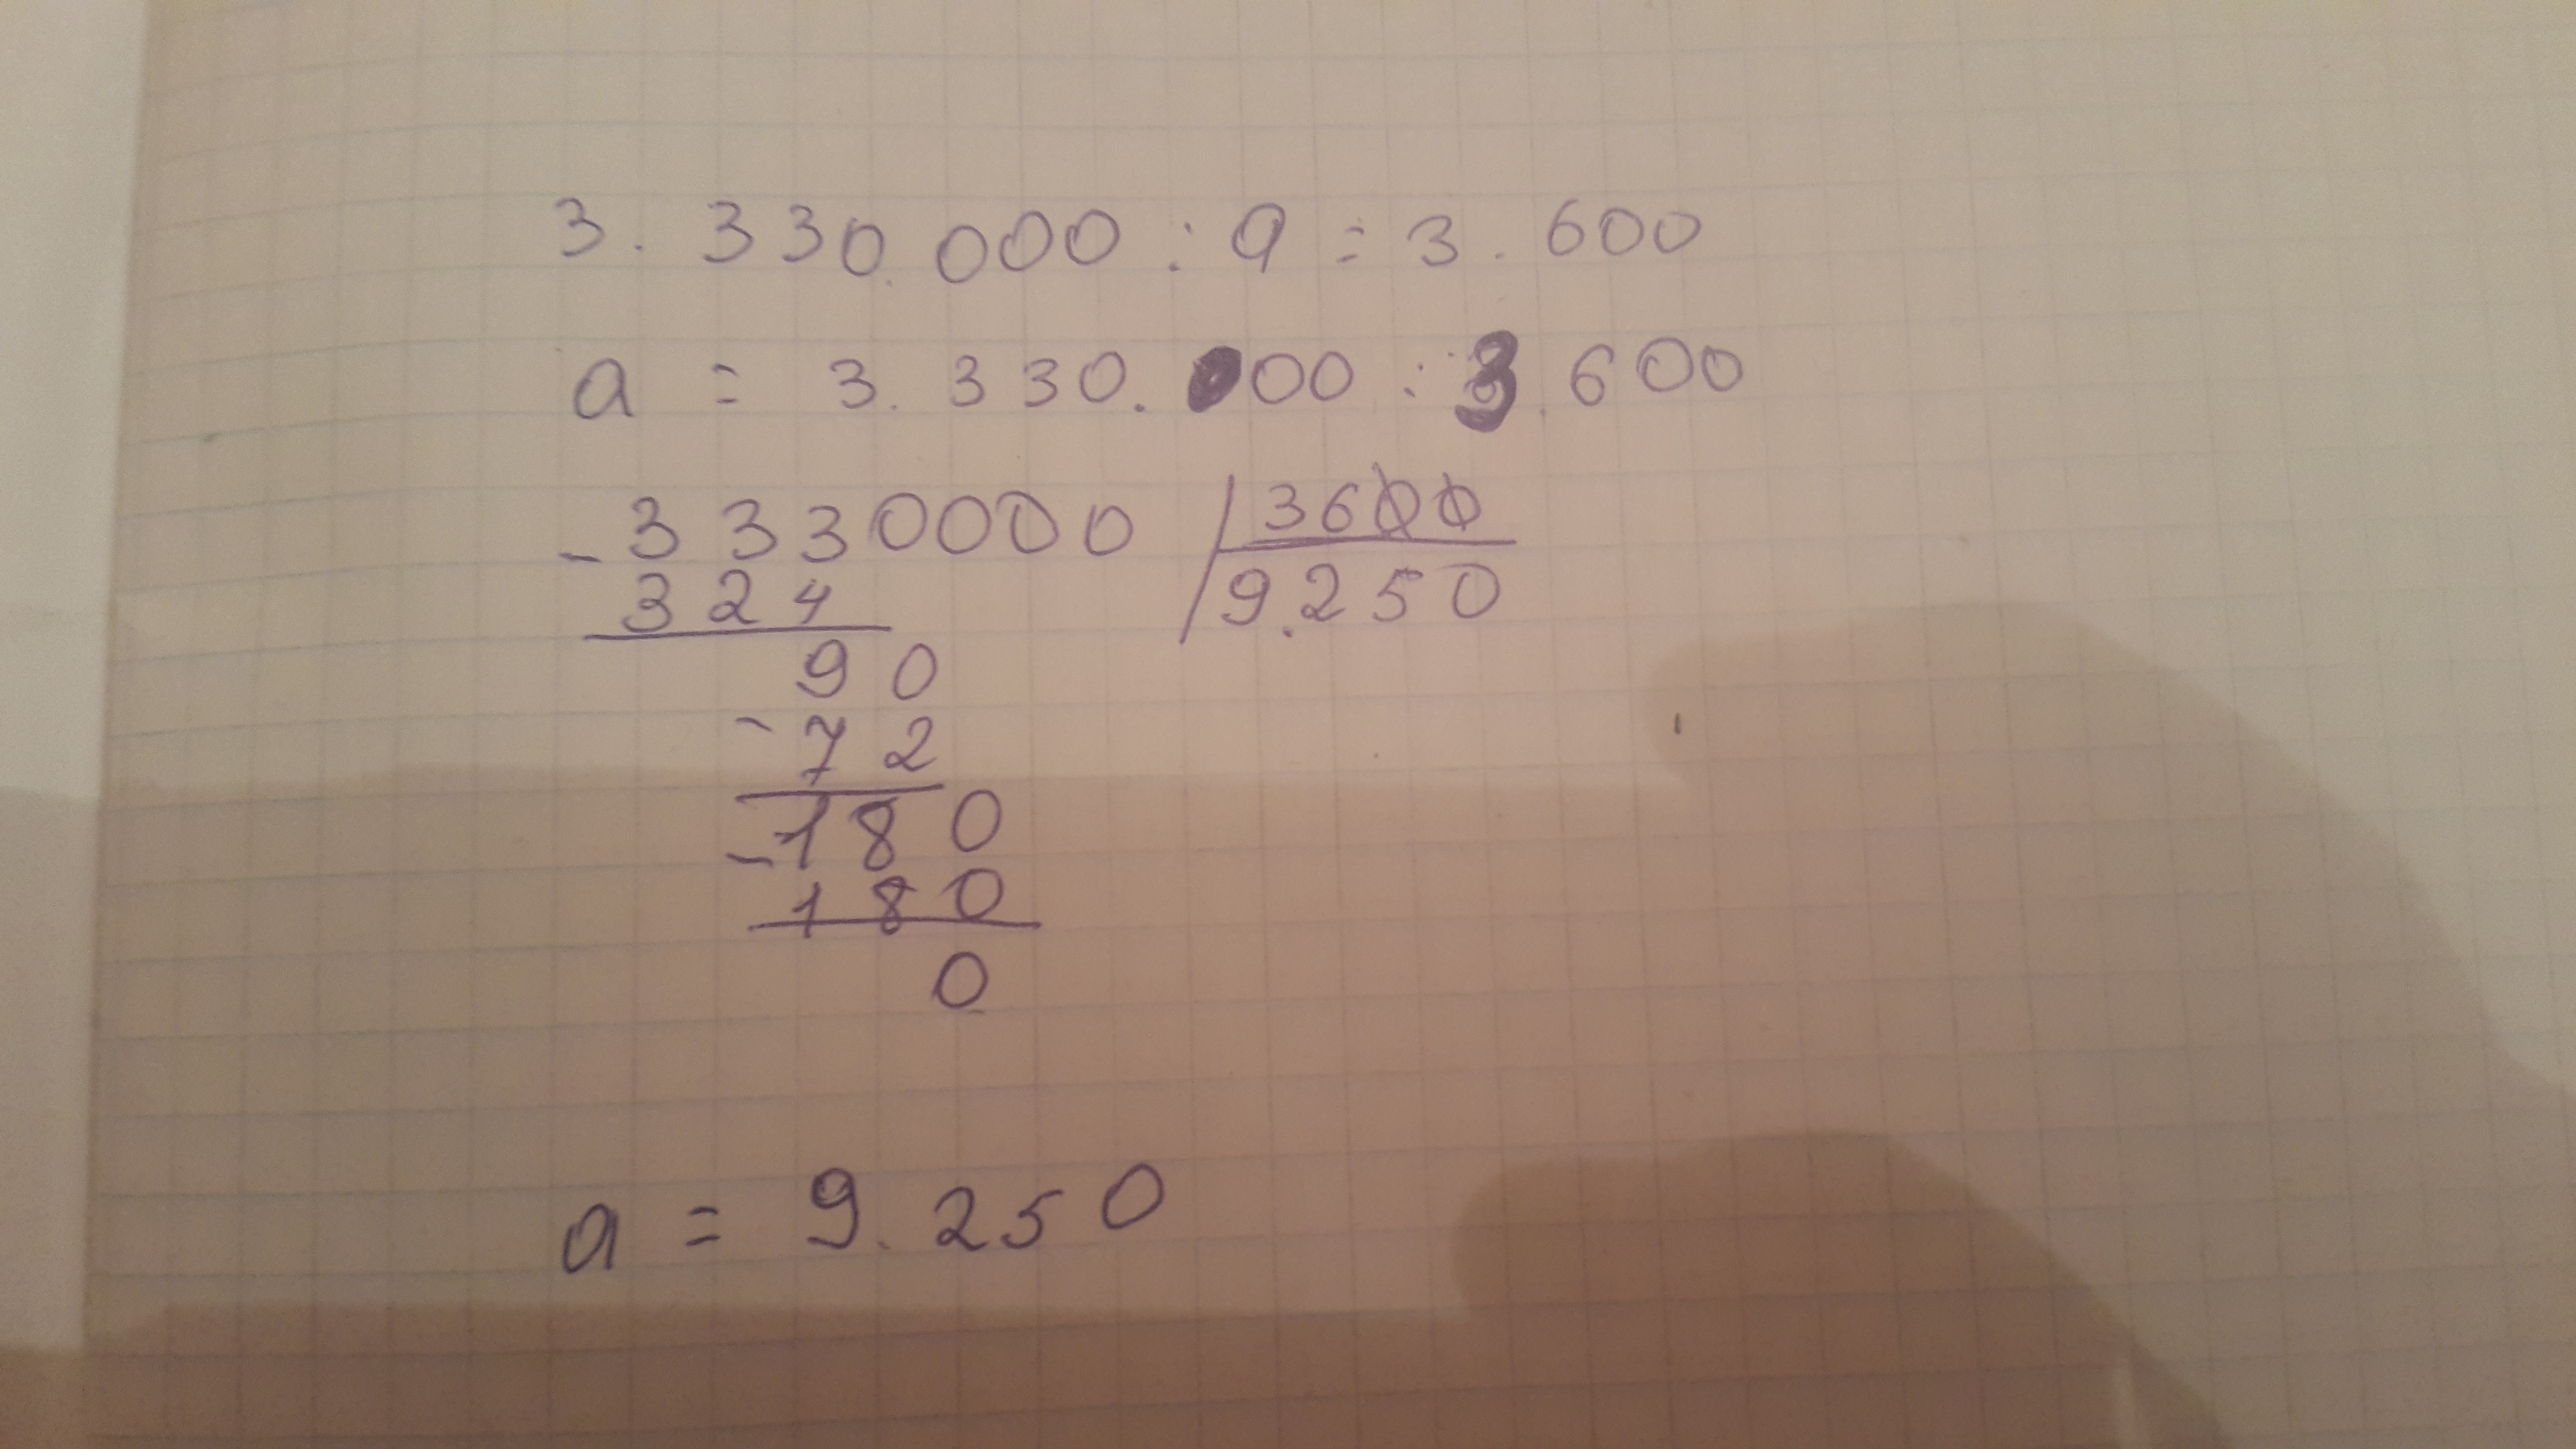 3.330.000 : a = 3.600
a = 3.330.000 : 3.600
- 3330000 | 3600
324 9.250
90
- 72
- 180
180
0
a = 9.250